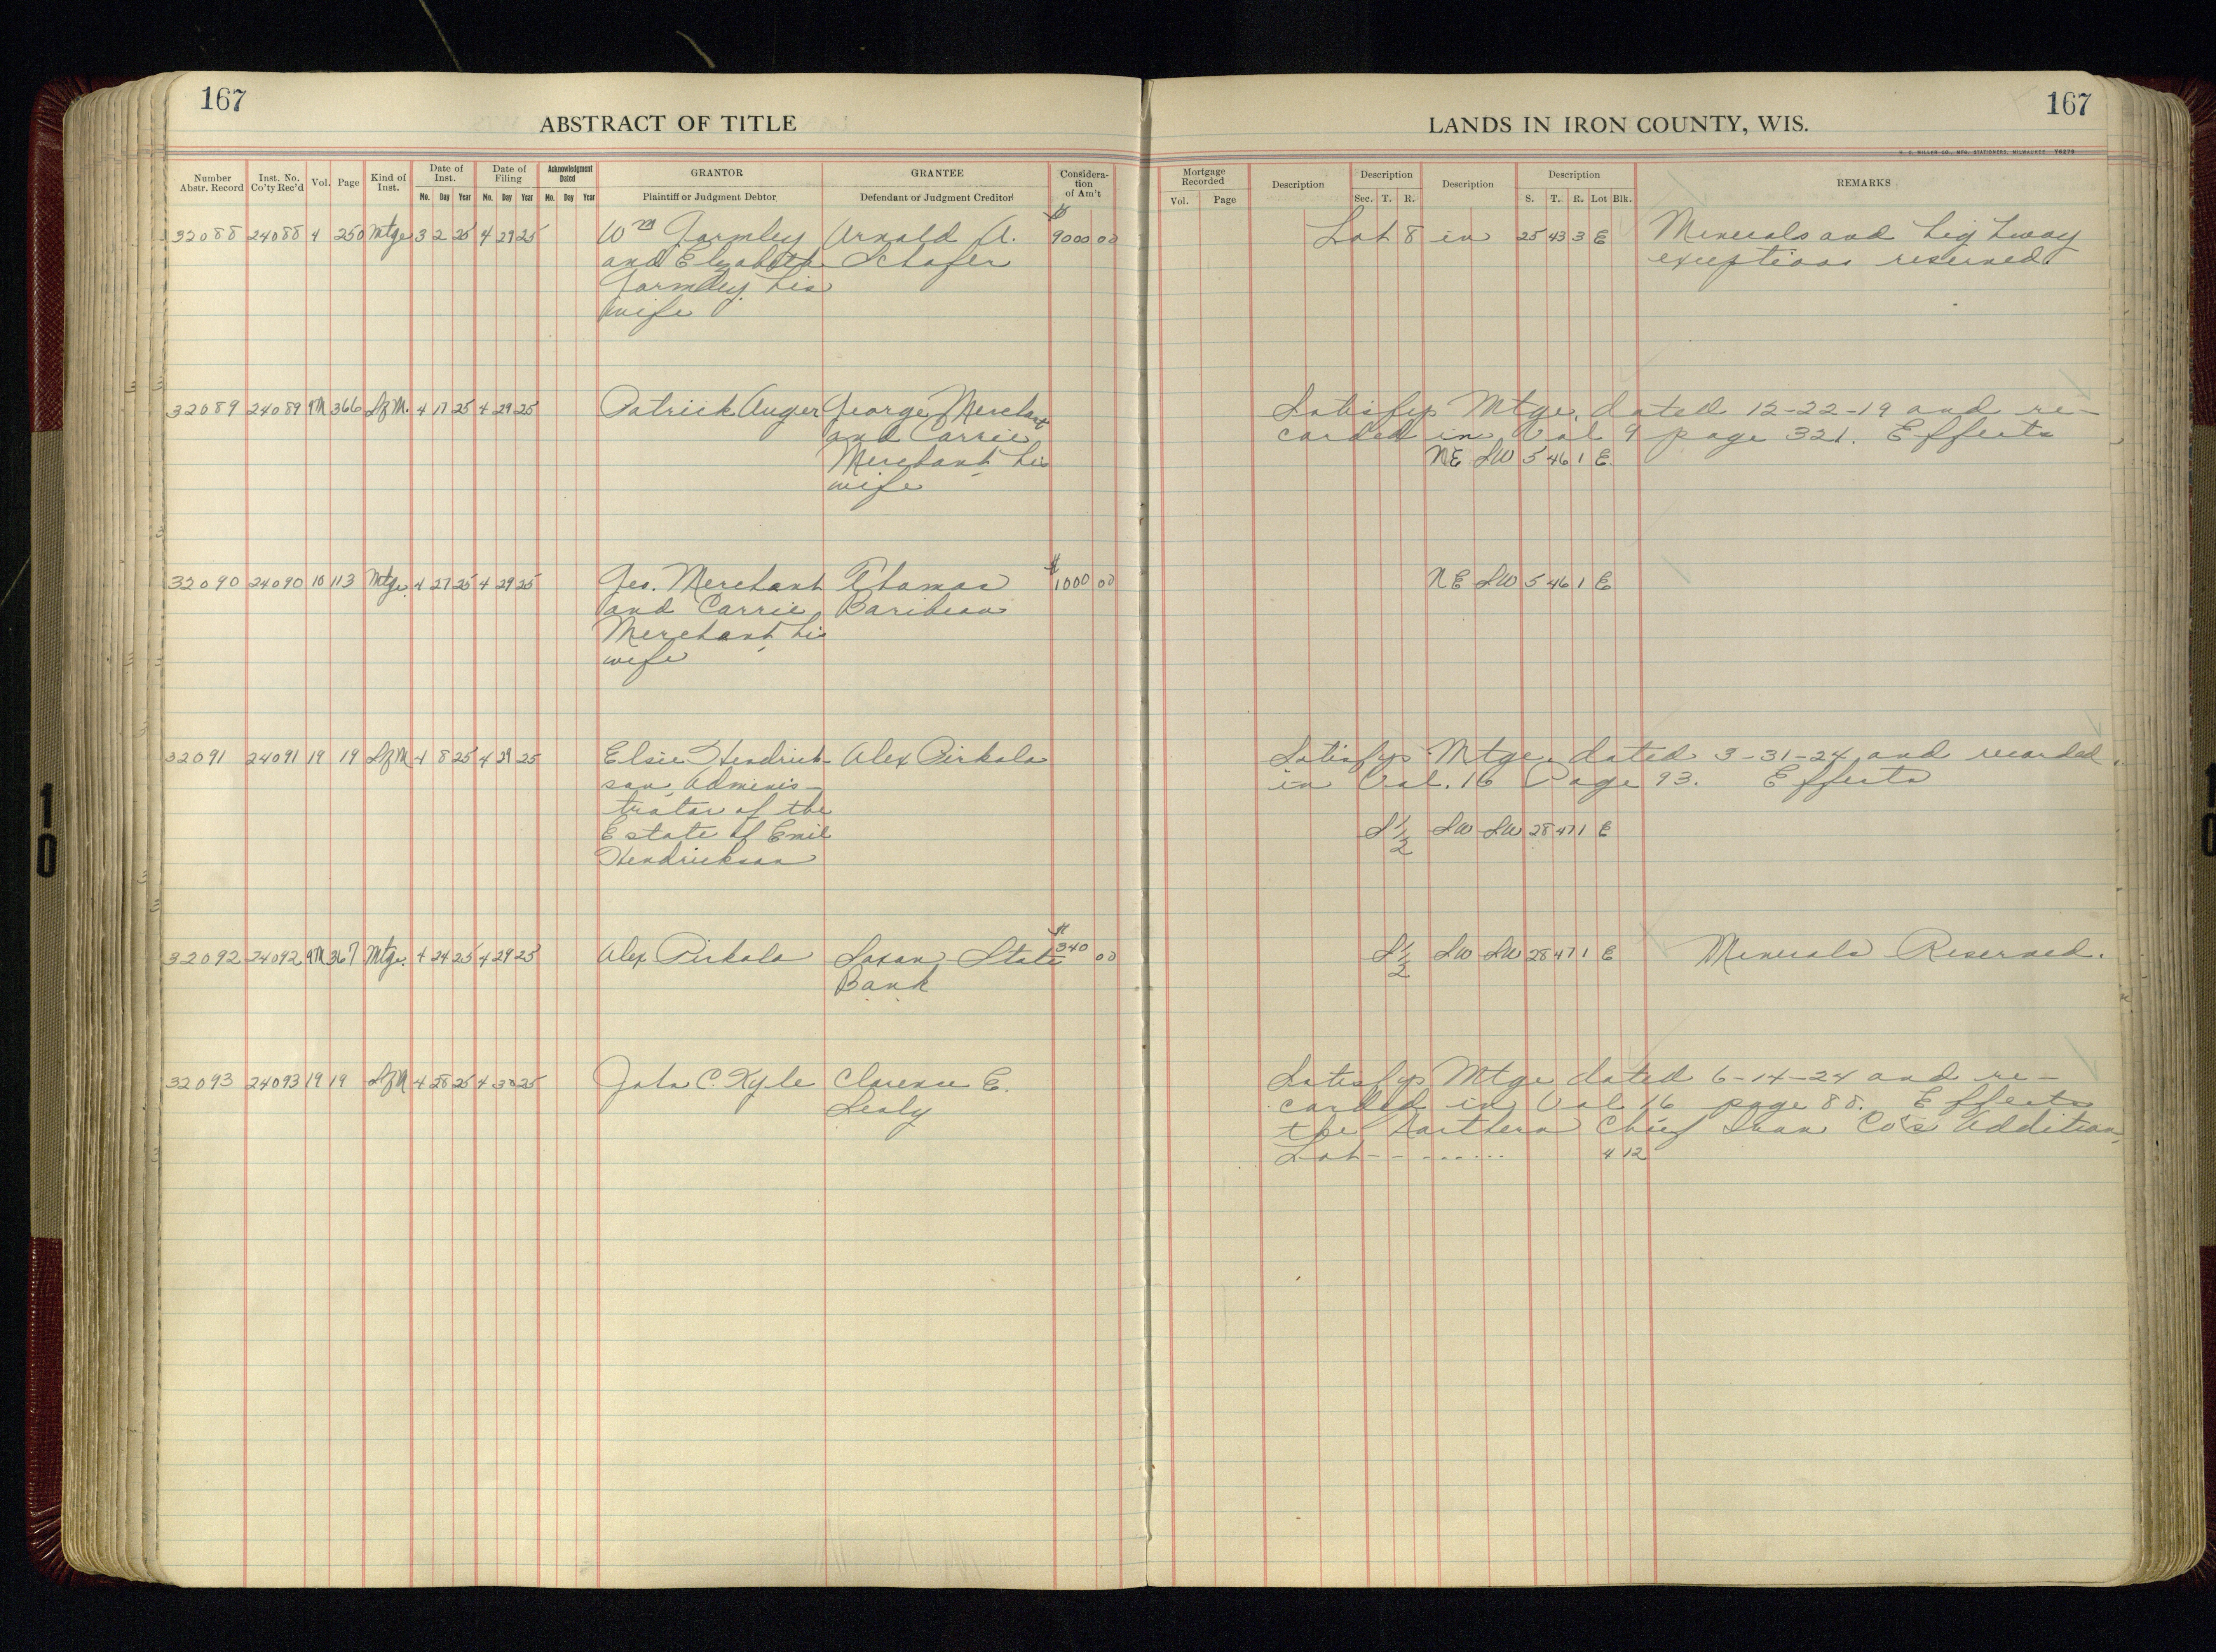 167
ABSTRACT OF TITLE
Number Abstr. Record
Inst. No. Co'ty Rec'd
Vol.
Page
Kind of Inst.
Date of Inst.
Mo. Day Year
Date of Filing
Mo. Day Year
Acknowledgment Dated
Mo. Day Year
GRANTOR
Plaintiff or Judgment Debtor
GRANTEE
Defendant or Judgment Creditor
Considera-
tion
of Am't
32088 24088 4 250 Mtge 3 2 25 4 29 25 Wm Gormley Arnold A. $9000 00
and Elizabeth Schafer
Gormley his
wife
32089 24089 9M 366 SfM. 4 17 25 4 29 25 Patrick Auger George Merchant
and Carrie
Merchant his
wife
32090 24090 10 113 Mtge. 4 27 25 4 29 25 Geo. Merchant Thomas $1000 00
and Carrie Baribeau
Merchant, his
wife
32091 24091 19 19 SfM 4 8 25 4 29 25 Elsie Hendrick- Alex Pirkola
son, Adminis-
trator of the
Estate of Emil
Hendrickson
32092 24092 9M 367 Mtge. 4 24 25 4 29 25 Alex Pirkola Saxon State $340 00
Bank
32093 24093 19 19 SfM 4 28 25 4 30 25 John C. Kyle Clarence E.
Sealy
167
LANDS IN IRON COUNTY, WIS.
H. C. MILLER CO., MFG. STATIONERS, MILWAUKEE
Mortgage Recorded
Vol. Page
Description
Description
Sec. T. R.
Description
Description
S. T. R. Lot Blk.
REMARKS
Lot 8 in 25 43 3 E Minerals and highway
exceptions reserved.
Satisfys Mtge. dated 12-22-19 and re-
corded in Vol 9 page 321. Effects
NE SW 5 46 1 E.
NE SW 5 46 1 E
Satisfys Mtge. dated 3-31-24 and recorded
in Vol. 16 Page 93. Effects
S 1/2 SW SW 28 47 1 E
S 1/2 SW SW 28 47 1 E Minerals Reserved.
Satisfys Mtge dated 6-14-24 and re-
corded in Vol 16 page 88. Effects
the Northern Chief Iron Co's Addition
Lot - - - - - - - - 4 12